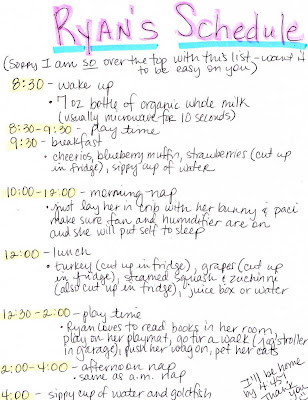 RYAN'S Schedule
(Sorry I am so over the top with this list - want it
to be easy on you)
8:30 - wake up
• 7 oz bottle of organic whole milk
(usually microwave for 10 seconds)
8:30-9:30 - play time
9:30 - breakfast
• cheerios, blueberry muffin, strawberries (cut up
in fridge), sippy cup of water
10:00-12:00 - morning nap
• just lay her in crib with her bunny & paci
make sure fan and humidifier are on
and she will put self to sleep
12:00 - lunch
• turkey (cut up in fridge), grapes (cut up
in fridge), steamed squash & zucchini
(also cut up in fridge), juice box or water
12:30-2:00 - play time
• Ryan loves to read books in her room,
play on her playmat, go for a walk (jog stroller
in garage), push her wagon, pet her cats
2:00-4:00 - afternoon nap
• same as a.m. nap
4:00 - sippy cup of water and goldfish
I'll be home
by 4:45!
Thank
you